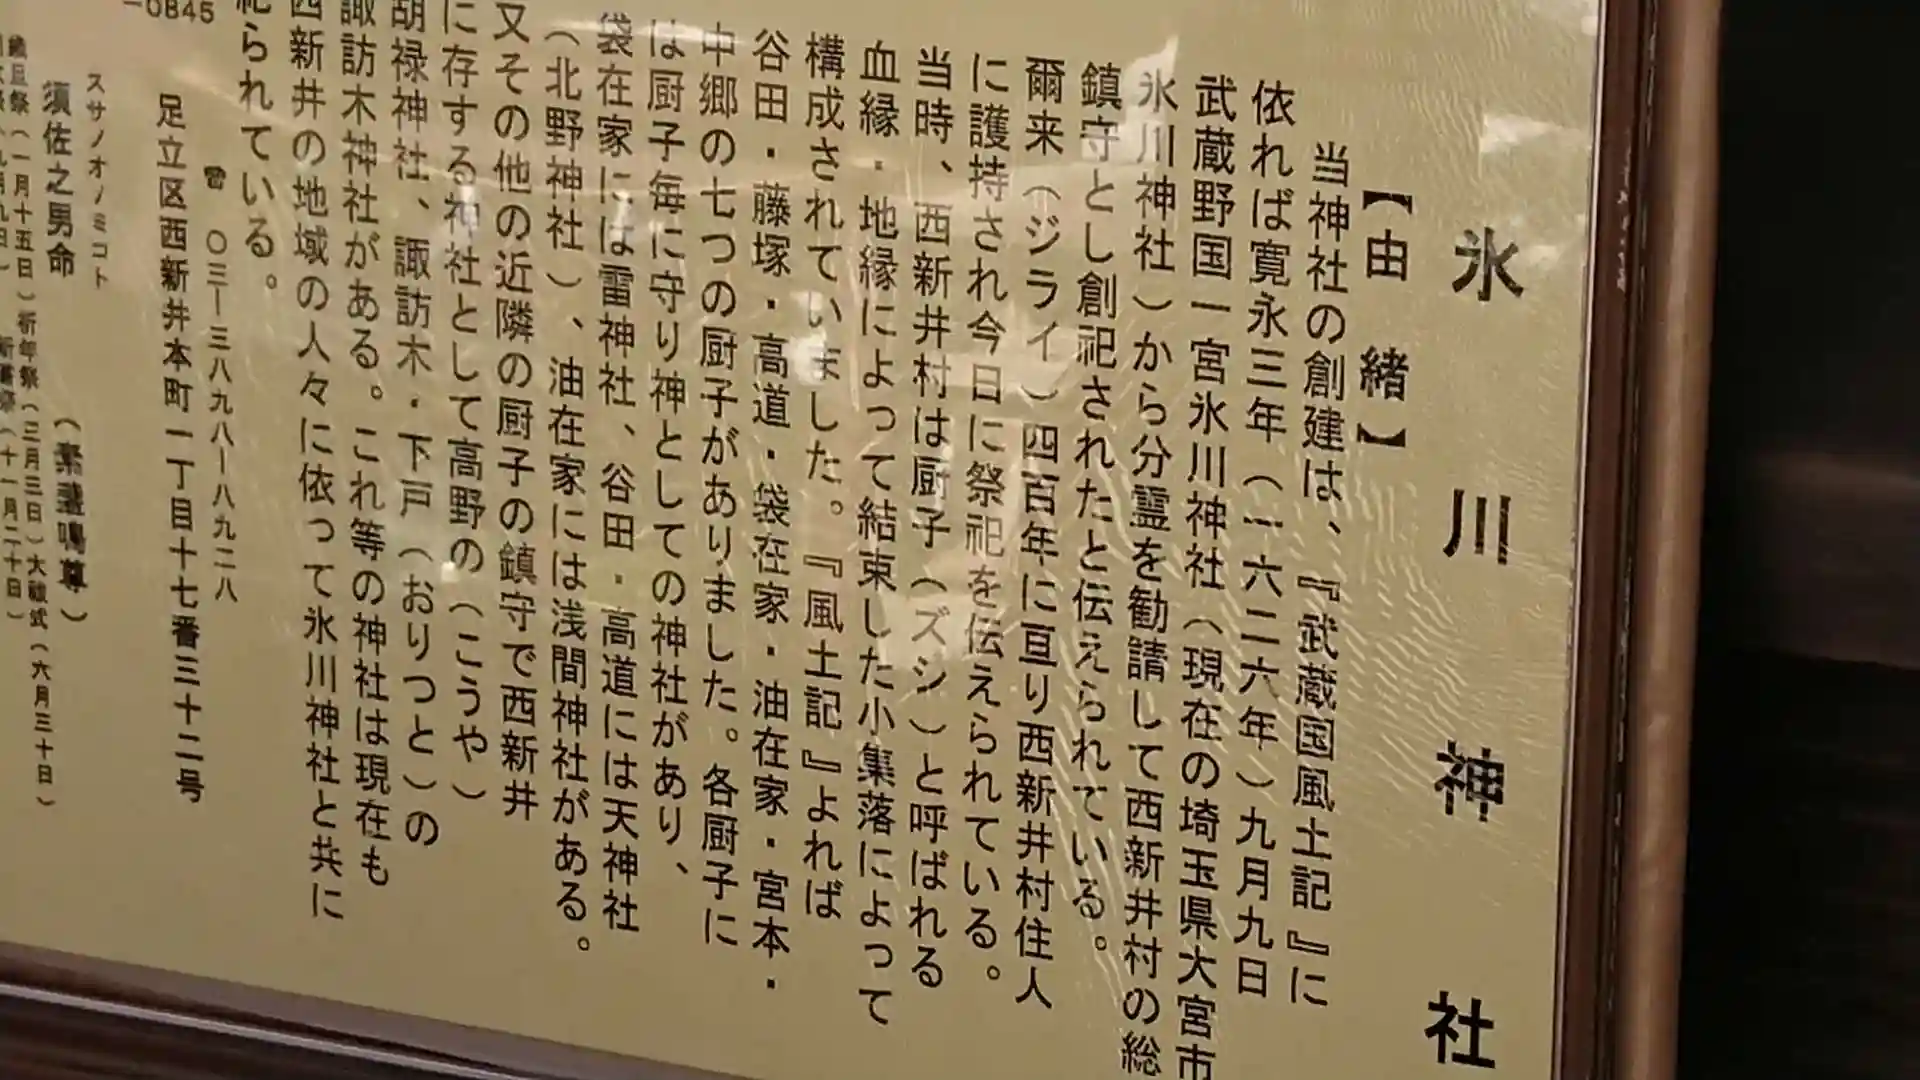 氷川神社
【由緒】
当神社の創建は、『武蔵国風土記』に
依れば寛永三年（一六二六年）九月九日
武蔵野国一宮氷川神社（現在の埼玉県大宮市
氷川神社）から分霊を勧請して西新井村の総
鎮守とし創祀されたと伝えられている。
爾来（ジライ）四百年に亘り西新井村住人
に護持され今日に祭祀を伝えられている。
当時、西新井村は厨子（ズシ）と呼ばれる
血縁・地縁によって結束した小集落によって
構成されていました。『風土記』よれば
谷田・藤塚・高道・袋在家・油在家・宮本・
中郷の七つの厨子がありました。各厨子に
は厨子毎に守り神としての神社があり、
袋在家には雷神社、谷田・高道には天神社
（北野神社）、油在家には浅間神社がある。
又その他の近隣の厨子の鎮守で西新井
に存する神社として高野の（こうや）
胡禄神社、諏訪木・下戸（おりつと）の
諏訪木神社がある。これ等の神社は現在も
西新井の地域の人々に依って氷川神社と共に
祀られている。
-0845
☎ 〇三ー三八九八ー八九二八
足立区西新井本町一丁目十七番三十二号
スサノオノミコト
須佐之男命（素盞鳴尊）
歳旦祭（一月十五日）祈年祭（三月三日）大祓式（六月三十日）